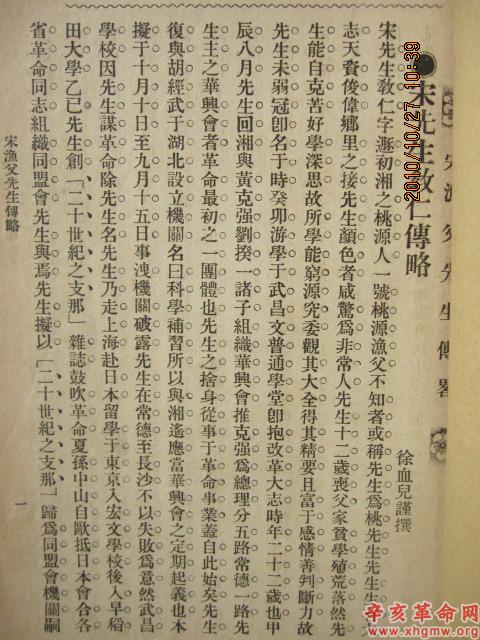 宋漁父先生傳畧
●宋先生敎仁傳略
徐血兒謹撰
宋先生敎仁字遯初湘之桃源人一號桃源漁父不知者或稱先生爲桃先生先生生
志天資俊偉鄉里之接先生顏色者咸驚爲非常人先生十二歲喪父家貧學殖荒落然先
生能自克苦好學深思故所學能窮源究委觀其大全得其精要且富于感情善判斷力故
先生未弱冠卽名于時癸卯游學于武昌文普通學堂卽抱改革大志時年二十二歲也甲
辰八月先生回湘與黃克强劉揆一諸子組織華興會推克强爲總理分五路常德一路先
生主之華興會者革命最初之一團體也先生之捨身從事于革命事業蓋自此始矣先生
復與胡經武于湖北設立機關名曰科學補習所以與湘遙應當華興會之定期起義也本
擬于十月十日至九月十五日事洩機關破露先生在常德至長沙不以失敗爲意然武昌
學校因先生謀革命除先生名先生乃走上海赴日本留學于東京入宏文學校後入早稻
田大學乙巳先生創「二十世紀之支那」雜誌鼓吹革命夏孫中山自歐抵日本會合各
省革命同志組織同盟會先生與焉先生擬以「二十世紀之支那」歸爲同盟會機關嗣
宋漁父先生傳略
一
2010/10/27 10:39
辛亥革命网
www.xhgmw.org